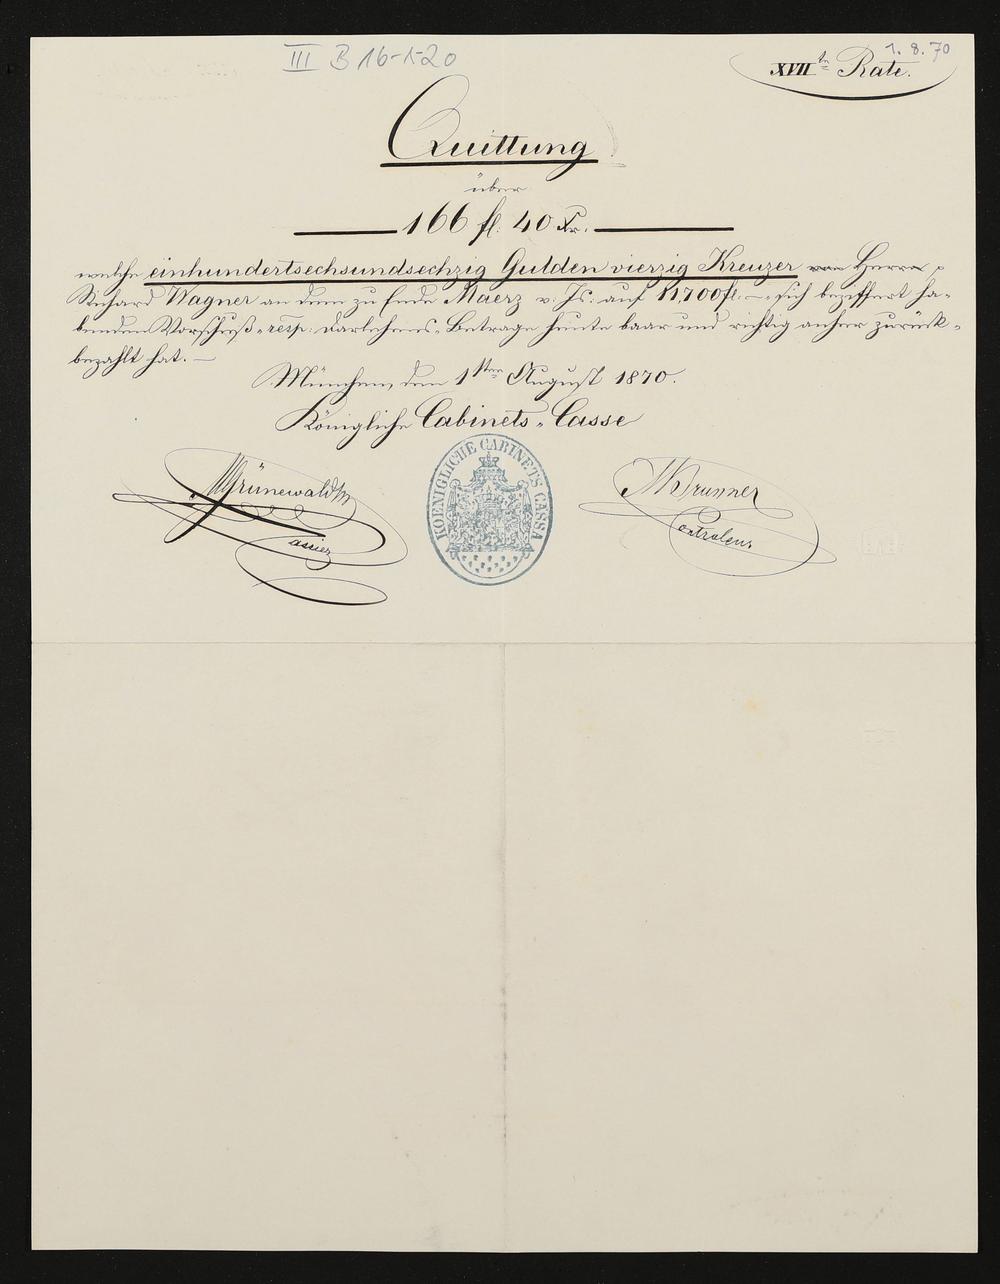 III B 16-1-20
1. 8. 70
XVII te Rate.
Quittung
über
166 fl. 40 Xr.
welche einhundertsechsundsechzig Gulden vierzig Kreuzer von Herrn
Richard Wagner an dem zu Ende Maerz v. Js. auf 11,700 fl. sich beziffert ha-
benden Vorschuß- resp. Darlehens-Betrage heute baar und richtig anher zurück-
bezahlt hat. —
München, den 1sten August 1870.
Königliche Cabinets-Casse
KOENIGLICHE CABINETS CASSA
Grünewald
Cassier
Brunner
Controleur